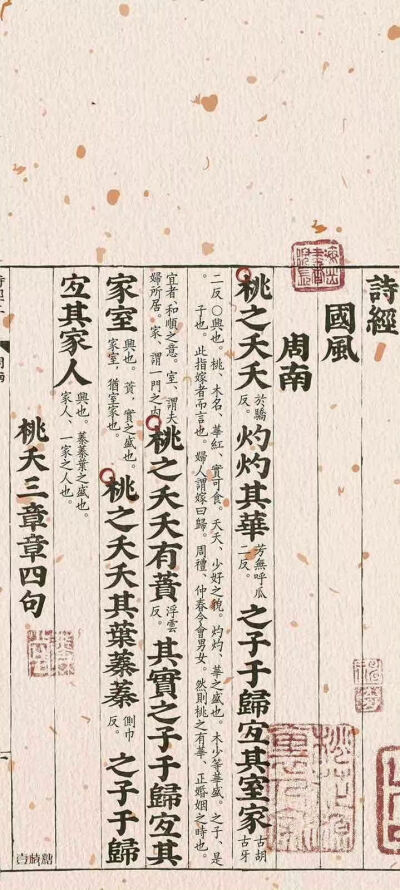 詩經
國風
周南
桃之夭夭於驕反。灼灼其華芳無呼瓜二反。之子于歸宐其室家古胡古牙
二反○興也。桃、木名、華紅、實可食。夭夭、少好之貌。灼灼、華之盛也。木少等華盛。之子、是
子也。此指嫁者而言也。婦人謂嫁曰歸。周禮、仲春令會男女。然則桃之有華、正婚姻之時也。
宜者、和順之意。室、謂夫婦所居。家、謂一門之内桃之夭夭有蕡浮雲反。其實之子于歸宐其
家室興也。蕡、實之盛也。家室、猶室家也。桃之夭夭其葉蓁蓁側巾反。之子于歸
宐其家人興也。蓁蓁葉之盛也。家人、一家之人也。
桃夭三章章四句